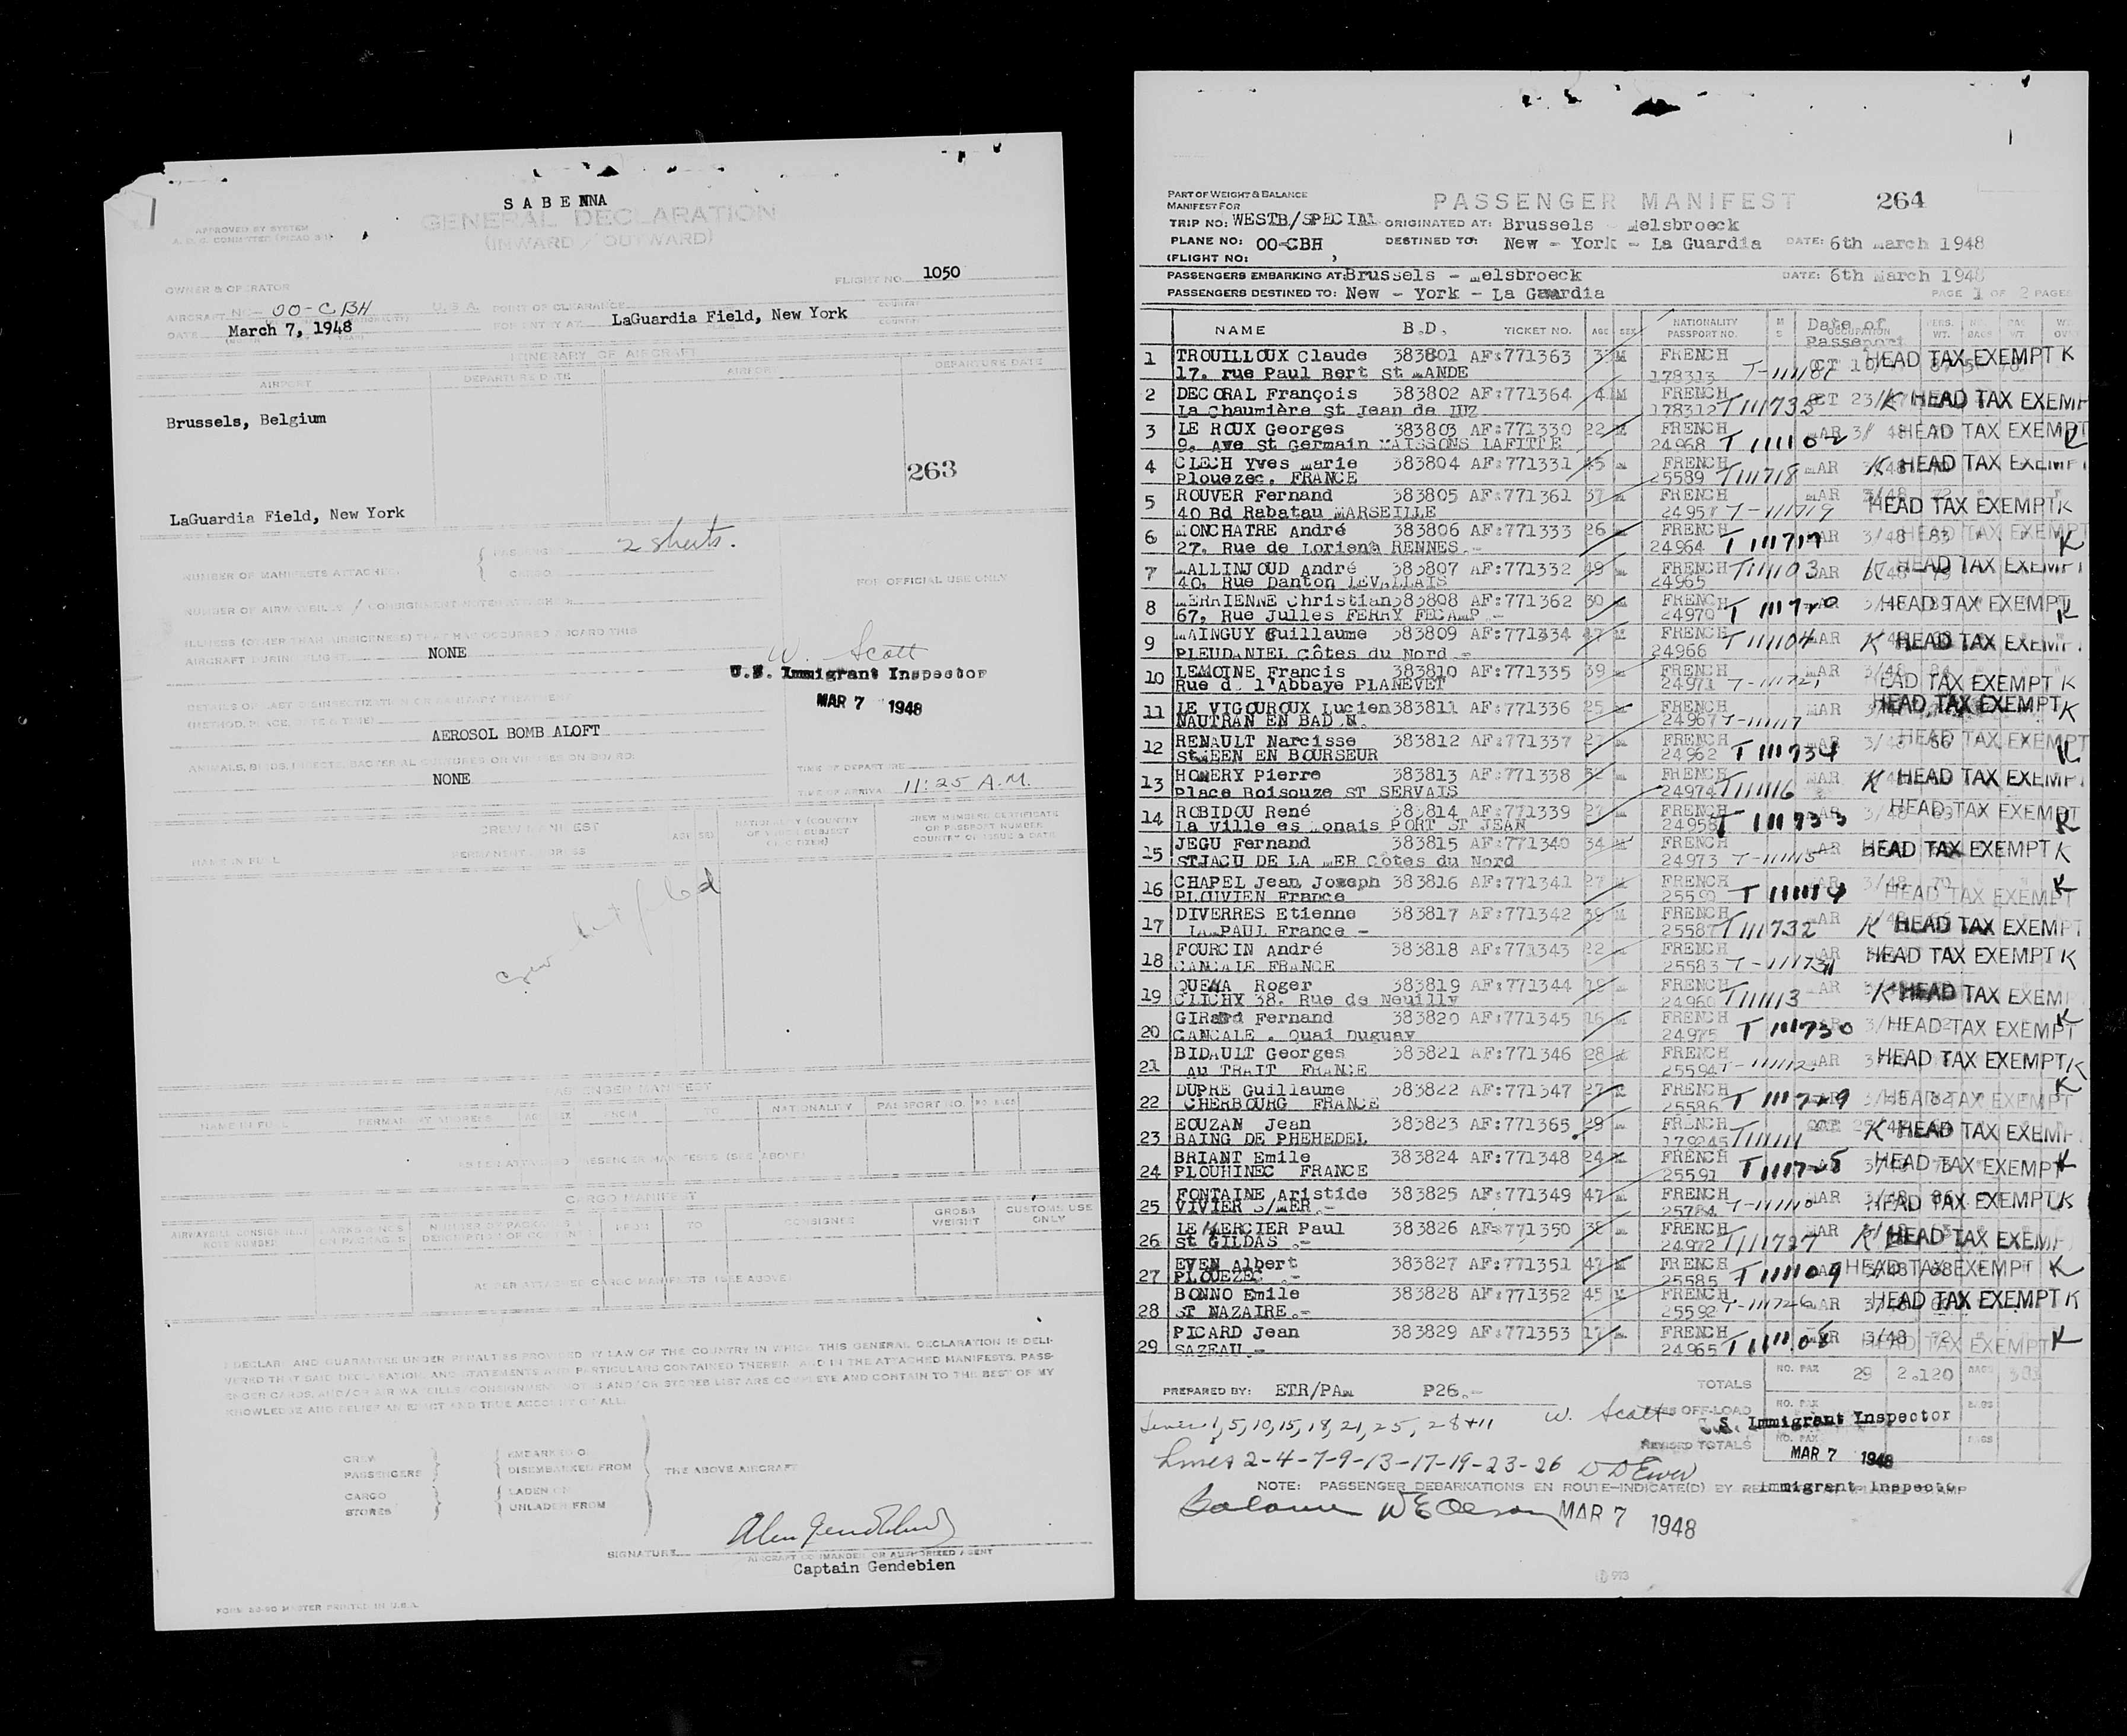 SABENNA
GENERAL DECLARATION
(INWARD / OUTWARD)
APPROVED BY SYSTEM
FLIGHT NO. 1050
OWNER & OPERATOR
AIRCRAFT NO- OO-CBH U.S.A. POINT OF CLEARANCE COUNTRY
DATE March 7, 1948 FOR ENTRY AT LaGuardia Field, New York COUNTRY
ITINERARY OF AIRCRAFT
AIRPORT DEPARTURE DATE AIRPORT DEPARTURE DATE
Brussels, Belgium
263
LaGuardia Field, New York
2 sheets.
CARGO
NUMBER OF MANIFESTS ATTACHED
FOR OFFICIAL USE ONLY
ILLNESS (OTHER THAN AIRSICKNESS) THAT HAS OCCURRED ABOARD THIS
AIRCRAFT DURING FLIGHT NONE
W. Scott
U.S. Immigrant Inspector
MAR 7 1948
DETAILS OF LAST DISINSECTIZATION OR SANITARY TREATMENT
(METHOD, PLACE, DATE & TIME)
AEROSOL BOMB ALOFT
ANIMALS, BIRDS, INSECTS, BACTERIAL CULTURES OR VIRUSES ON BOARD:
NONE
TIME OF DEPARTURE
TIME OF ARRIVAL 11:25 A.M.
CREW MANIFEST
NAME IN FULL PERMANENT ADDRESS AGE SEX NATIONALITY (COUNTRY OF WHICH SUBJECT OR CITIZEN) CREW MEMBERS CERTIFICATE OR PASSPORT NUMBER COUNTRY OF ISSUE & DATE
crew list filed
PASSENGER MANIFEST
NAME IN FULL PERMANENT ADDRESS AGE SEX FROM TO NATIONALITY PASSPORT NO. NO. BAGS
AS PER ATTACHED PASSENGER MANIFESTS (SEE ABOVE)
CARGO MANIFEST
FROM TO CONSIGNEE GROSS WEIGHT CUSTOMS USE ONLY
AS PER ATTACHED CARGO MANIFESTS (SEE ABOVE)
I DECLARE AND GUARANTEE UNDER PENALTIES PROVIDED BY LAW OF THE COUNTRY IN WHICH THIS GENERAL DECLARATION IS DELI-
VERED THAT SAID DECLARATION AND STATEMENTS AND PARTICULARS CONTAINED THEREIN AND IN THE ATTACHED MANIFESTS, PASS-
ENGER CARDS, AND/OR AIR WAYBILLS/CONSIGNMENT NOTES AND/OR STORES LIST ARE COMPLETE AND CONTAIN TO THE BEST OF MY
KNOWLEDGE AND BELIEF AN EXACT AND TRUE ACCOUNT OF ALL:
CREW EMBARKED ON
PASSENGERS DISEMBARKED FROM THE ABOVE AIRCRAFT
CARGO LADEN ON
STORES UNLADEN FROM
SIGNATURE
AIRCRAFT COMMANDER OR AUTHORIZED AGENT
Captain Gendebien
PART OF WEIGHT & BALANCE
MANIFEST FOR
PASSENGER MANIFEST 264
TRIP NO: WESTB/SPECIAL ORIGINATED AT: Brussels Melsbroeck
PLANE NO: OO-CBH DESTINED TO: New - York - La Guardia DATE: 6th March 1948
(FLIGHT NO: )
PASSENGERS EMBARKING AT: Brussels - Melsbroeck DATE: 6th March 1948
PASSENGERS DESTINED TO: New - York - La Guardia PAGE 1 OF 2 PAGES
NAME B.D. TICKET NO. AGE SEX NATIONALITY PASSPORT NO. Date of Passeport
1 TROUILLOUX Claude 383801 AF:771363 M FRENCH HEAD TAX EXEMPT K
17. rue Paul Bert St MANDE 178313
2 DECORAL François 383802 AF:771364 M FRENCH K HEAD TAX EXEMP
La Chaumière St Jean de LUZ 178312 T111735
3 LE ROUX Georges 383803 AF:771330 22 M FRENCH HEAD TAX EXEMPT
9. Ave St Germain MAISSONS LAFITTE 24968 T 111102 K
4 CLECH Yves Marie 383804 AF:771331 45 M FRENCH MAR K HEAD TAX EXEMPT
Plouezec. FRANCE 25589 T111718
5 ROUVER Fernand 383805 AF:771361 37 M FRENCH MAR 3/48 HEAD TAX EXEMPT K
40 Bd Rabatau MARSEILLE T-111719
6 MONCHATRE André 383806 AF:771333 26 M FRENCH MAR 3/48 83 HEAD TAX EXEMPT
27. Rue de Lorient RENNES.- 24964 T 111717 K
7 MALLINJOUD André 383807 AF:771332 49 M FRENCH T111103 K HEAD TAX EXEMPT
40, Rue Danton LEVALLAIS 24965
8 MERRIENNE Christian 383808 AF:771362 30 M FRENCH HEAD TAX EXEMPT
67, Rue Julles FERRY FECAMP.- 24970 T 111720 K
9 MAINGUY Guillaume 383809 AF:771334 47 M FRENCH T111104 MAR K HEAD TAX EXEMP
PLEUDANIEL Côtes du Nord.- 24966
10 LEMOINE Francis 383810 AF:771335 39 M FRENCH MAR 3/48 84 HEAD TAX EXEMPT K
Rue d. l'Abbaye PLANEVET 24971 T-111721
11 LE VIGOUROUX Lucien 383811 AF:771336 25 M FRENCH MAR HEAD TAX EXEMPT K
NAUTRAN EN BAD.N. 24967 T-111117
12 RENAULT Narcisse 383812 AF:771337 27 M FRENCH HEAD TAX EXEMPT
St MEEN EN BOURSEUR 24962 T 111734 K
13 HOMERY Pierre 383813 AF:771338 52 M FRENCH MAR K HEAD TAX EXEMP
Place Roisouze ST SERVAIS 24974 T111116
14 ROBIDOU René 383814 AF:771339 27 FRENCH HEAD TAX EXEMPT
La Ville es Monais PORT ST JEAN 24958 T 111733 K
15 JEGU Fernand 383815 AF:771340 34 M FRENCH HEAD TAX EXEMPT K
STJACU DE LA MER Côtes du Nord 24973 T-111115
16 CHAPEL Jean Joseph 383816 AF:771341 27 M FRENCH 3/48 70 HEAD TAX EXEMPT K
PLOUVIEN France T 111114
17 DIVERRES Etienne 383817 AF:771342 39 M FRENCH MAR K HEAD TAX EXEMPT
LAMPAUL France - 25587 T111732
18 FOURCIN André 383818 AF:771343 22 FRENCH HEAD TAX EXEMPT K
CANCALE FRANCE 25583
19 QUEMA Roger 383819 AF:771344 FRENCH K HEAD TAX EXEM
CLICHY 38. Rue de Neuilly 24960 T111113
20 GIRard Fernand 383820 AF:771345 16 M FRENCH HEAD TAX EXEMPT K
CANCALE . Quai Duguay 24975 T 111730
21 BIDAULT Georges 383821 AF:771346 28 M FRENCH HEAD TAX EXEMPT K
AU TRAIT FRANCE 25594 T-111112
22 DUPRE Guillaume 383822 AF:771347 27 FRENCH HEAD TAX EXEMPT K
CHERBOURG FRANCE 25586 T 111729
23 EOUZAN Jean 383823 AF:771365 29 FRENCH K HEAD TAX EXEMP
BAING DE PHEHEDEL 179245 T111111
24 BRIANT Emile 383824 AF:771348 24 FRENCH HEAD TAX EXEMPT K
PLOUHINEC FRANCE 25591 T 111725
25 FONTAINE Aristide 383825 AF:771349 47 M FRENCH MAR 3/48 HEAD TAX EXEMPT K
VIVIER S/MER.- 25784 T-111110
26 LE MERCIER Paul 383826 AF:771350 38 FRENCH MAR K HEAD TAX EXEMP
St GILDAS .- 24972 T111727
27 EVEN Albert 383827 AF:771351 47 M FRENCH HEAD TAX EXEMPT K
PLOUEZEC .- 25585 T 111109
28 BONNO Emile 383828 AF:771352 45 M FRENCH MAR HEAD TAX EXEMPT K
ST NAZAIRE.- 25592 T-111726
29 PICARD Jean 383829 AF:771353 17 M FRENCH 3/48 72 HEAD TAX EXEMPT K
SAZEAU.- 24965 T 111108
TOTALS NO. PAX 29 2.120 BAGS
PREPARED BY: ETR/PAM P26.-
Lines 1, 5, 10, 15, 18, 21, 25, 28 + 11 W. Scott
U.S. Immigrant Inspector
Lines 2-4-7-9-13-17-19-23-26 D D Ewer
REVISED TOTALS NO. PAX BAGS
MAR 7 1948
NOTE: PASSENGER DEBARKATIONS EN ROUTE-INDICATE(D) BY
Immigrant Inspector
Balance W E Olson MAR 7 1948
993